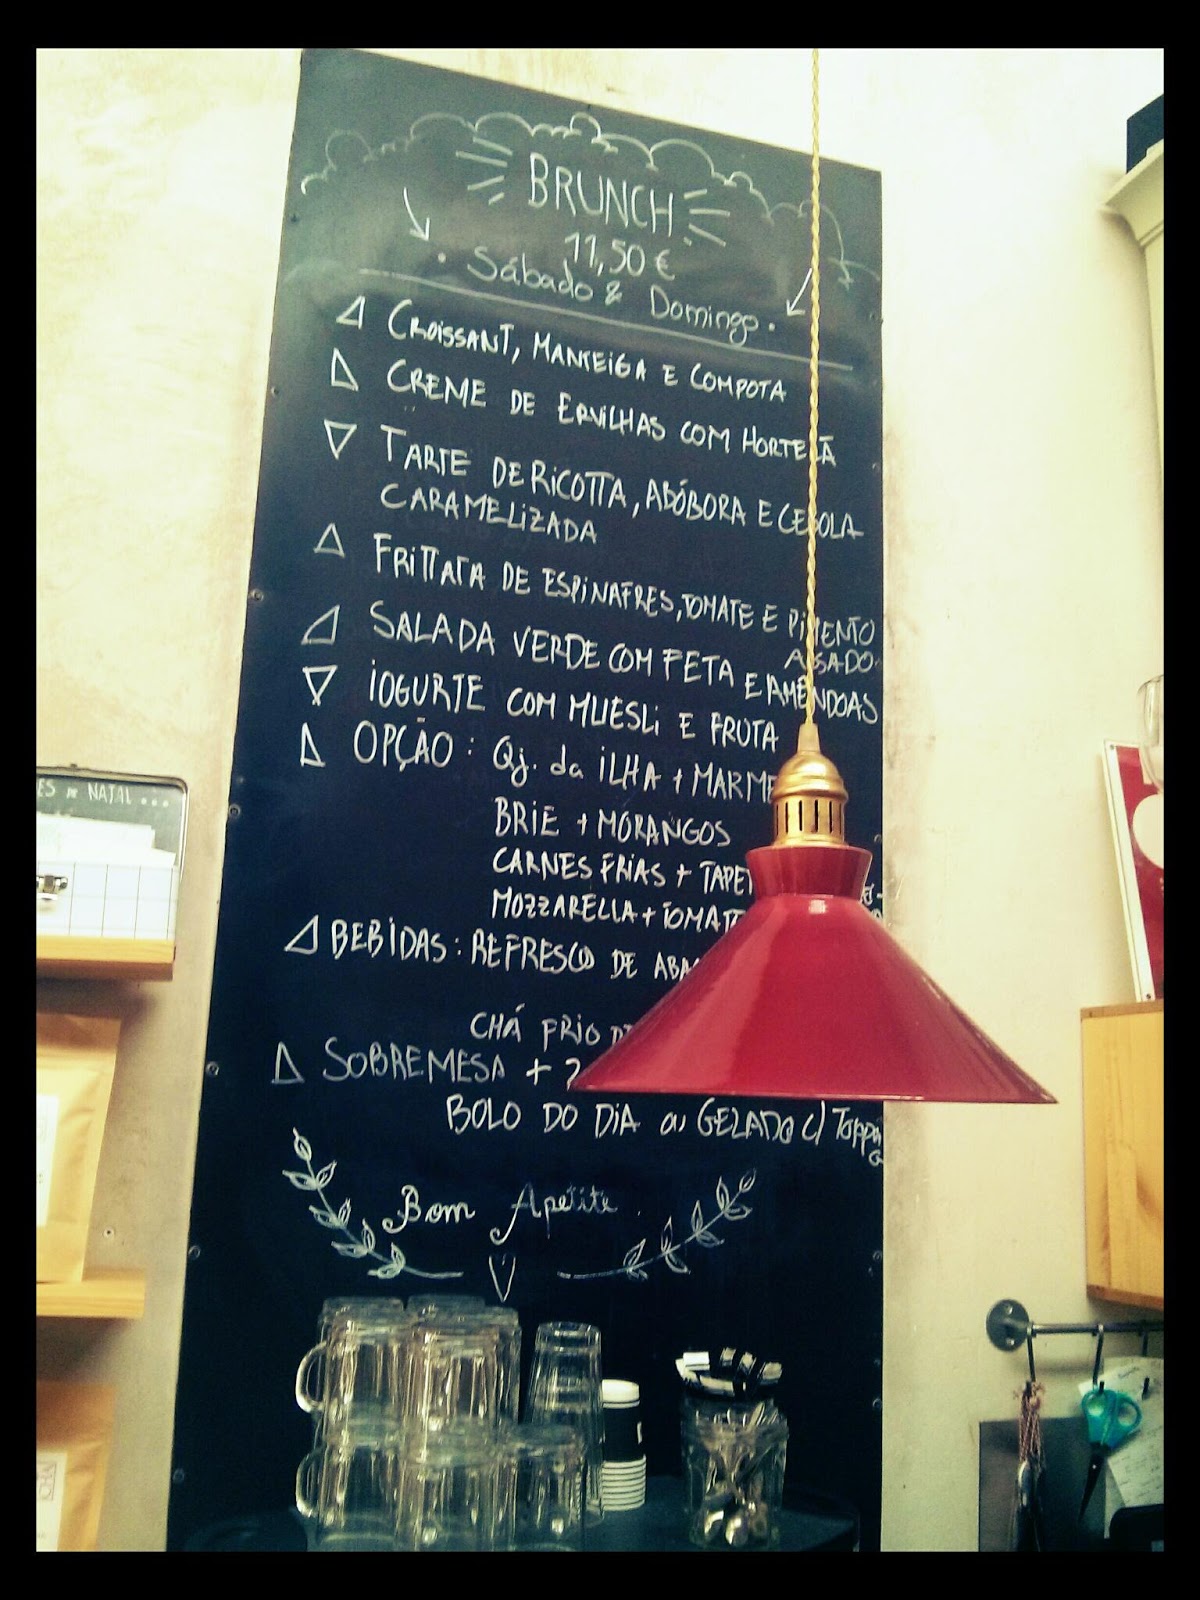 BRUNCH
11,50 €
Sábado & Domingo.
CROISSANT, MANTEIGA E COMPOTA
CREME DE ERVILHAS COM HORTELÃ
TARTE DE RICOTTA, ABÓBORA E CEBOLA
CARAMELIZADA
FRITTATA DE ESPINAFRES, TOMATE E PIMENTO
ASSADO
SALADA VERDE COM FETA E AMÊNDOAS
IOGURTE COM MUESLI E FRUTA
OPÇÃO: Qj. da ILHA +
BRIE + MORANGOS
CARNES FRIAS +
MOZZARELLA + TOMATE
BEBIDAS: REFRESCO DE
CHÁ FRIO
SOBREMESA +
BOLO DO DIA ou GELADO C/ Topping
Bom Apetite.
DE NATAL...